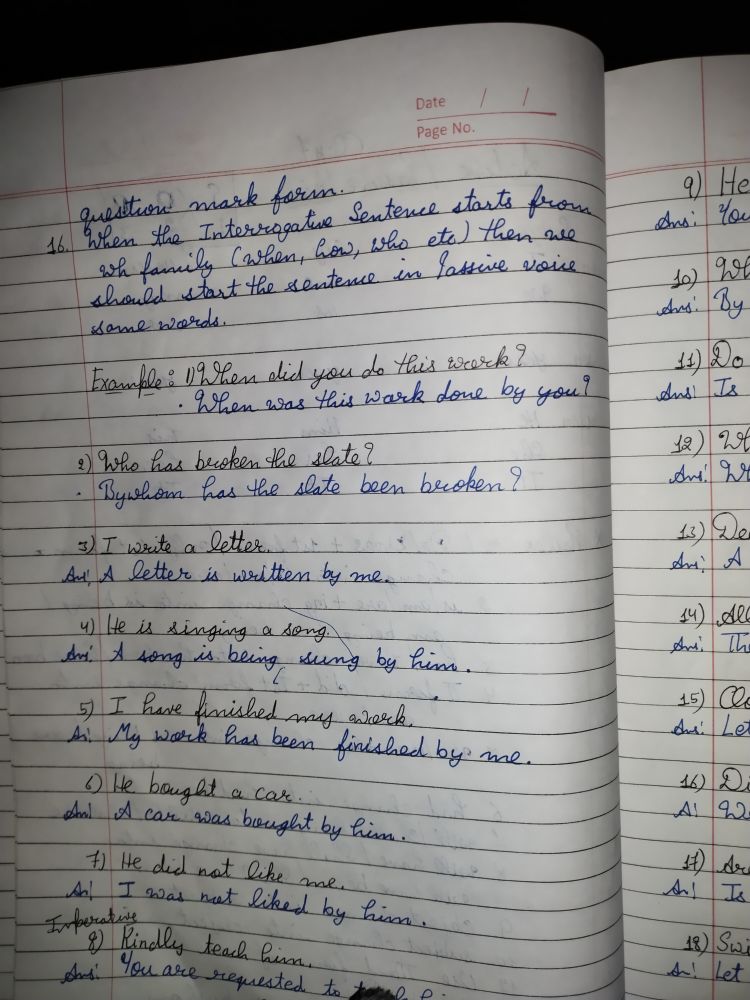 Date / /
Page No.
question mark form.
16. When the Interrogative Sentence starts from
wh family (when, how, who etc) then we
should start the sentence in Passive voice
same words.
Example: 1) When did you do this work?
· When was this work done by you?
2) Who has broken the slate?
· Bywhom has the slate been broken?
3) I write a letter.
Ans! A letter is written by me.
4) He is singing a song.
Ans! A song is being sung by him.
5) I have finished my work.
An! My work has been finished by me.
6) He bought a car.
Ans! A car was bought by him.
7) He did not like me.
An! I was not liked by him.
Imperative
8) Kindly teach him.
Ans: You are requested to
9) He
Ans: You
10) Wh
Ans: By
11) Do
Ans! Is
12) Wh
Ans! Wh
13) De
Ans! A
14) All
Ans: The
15) Clo
Ans: Let
16) Di
A! W
17) Are
An! Is
18) Swi
An! Let